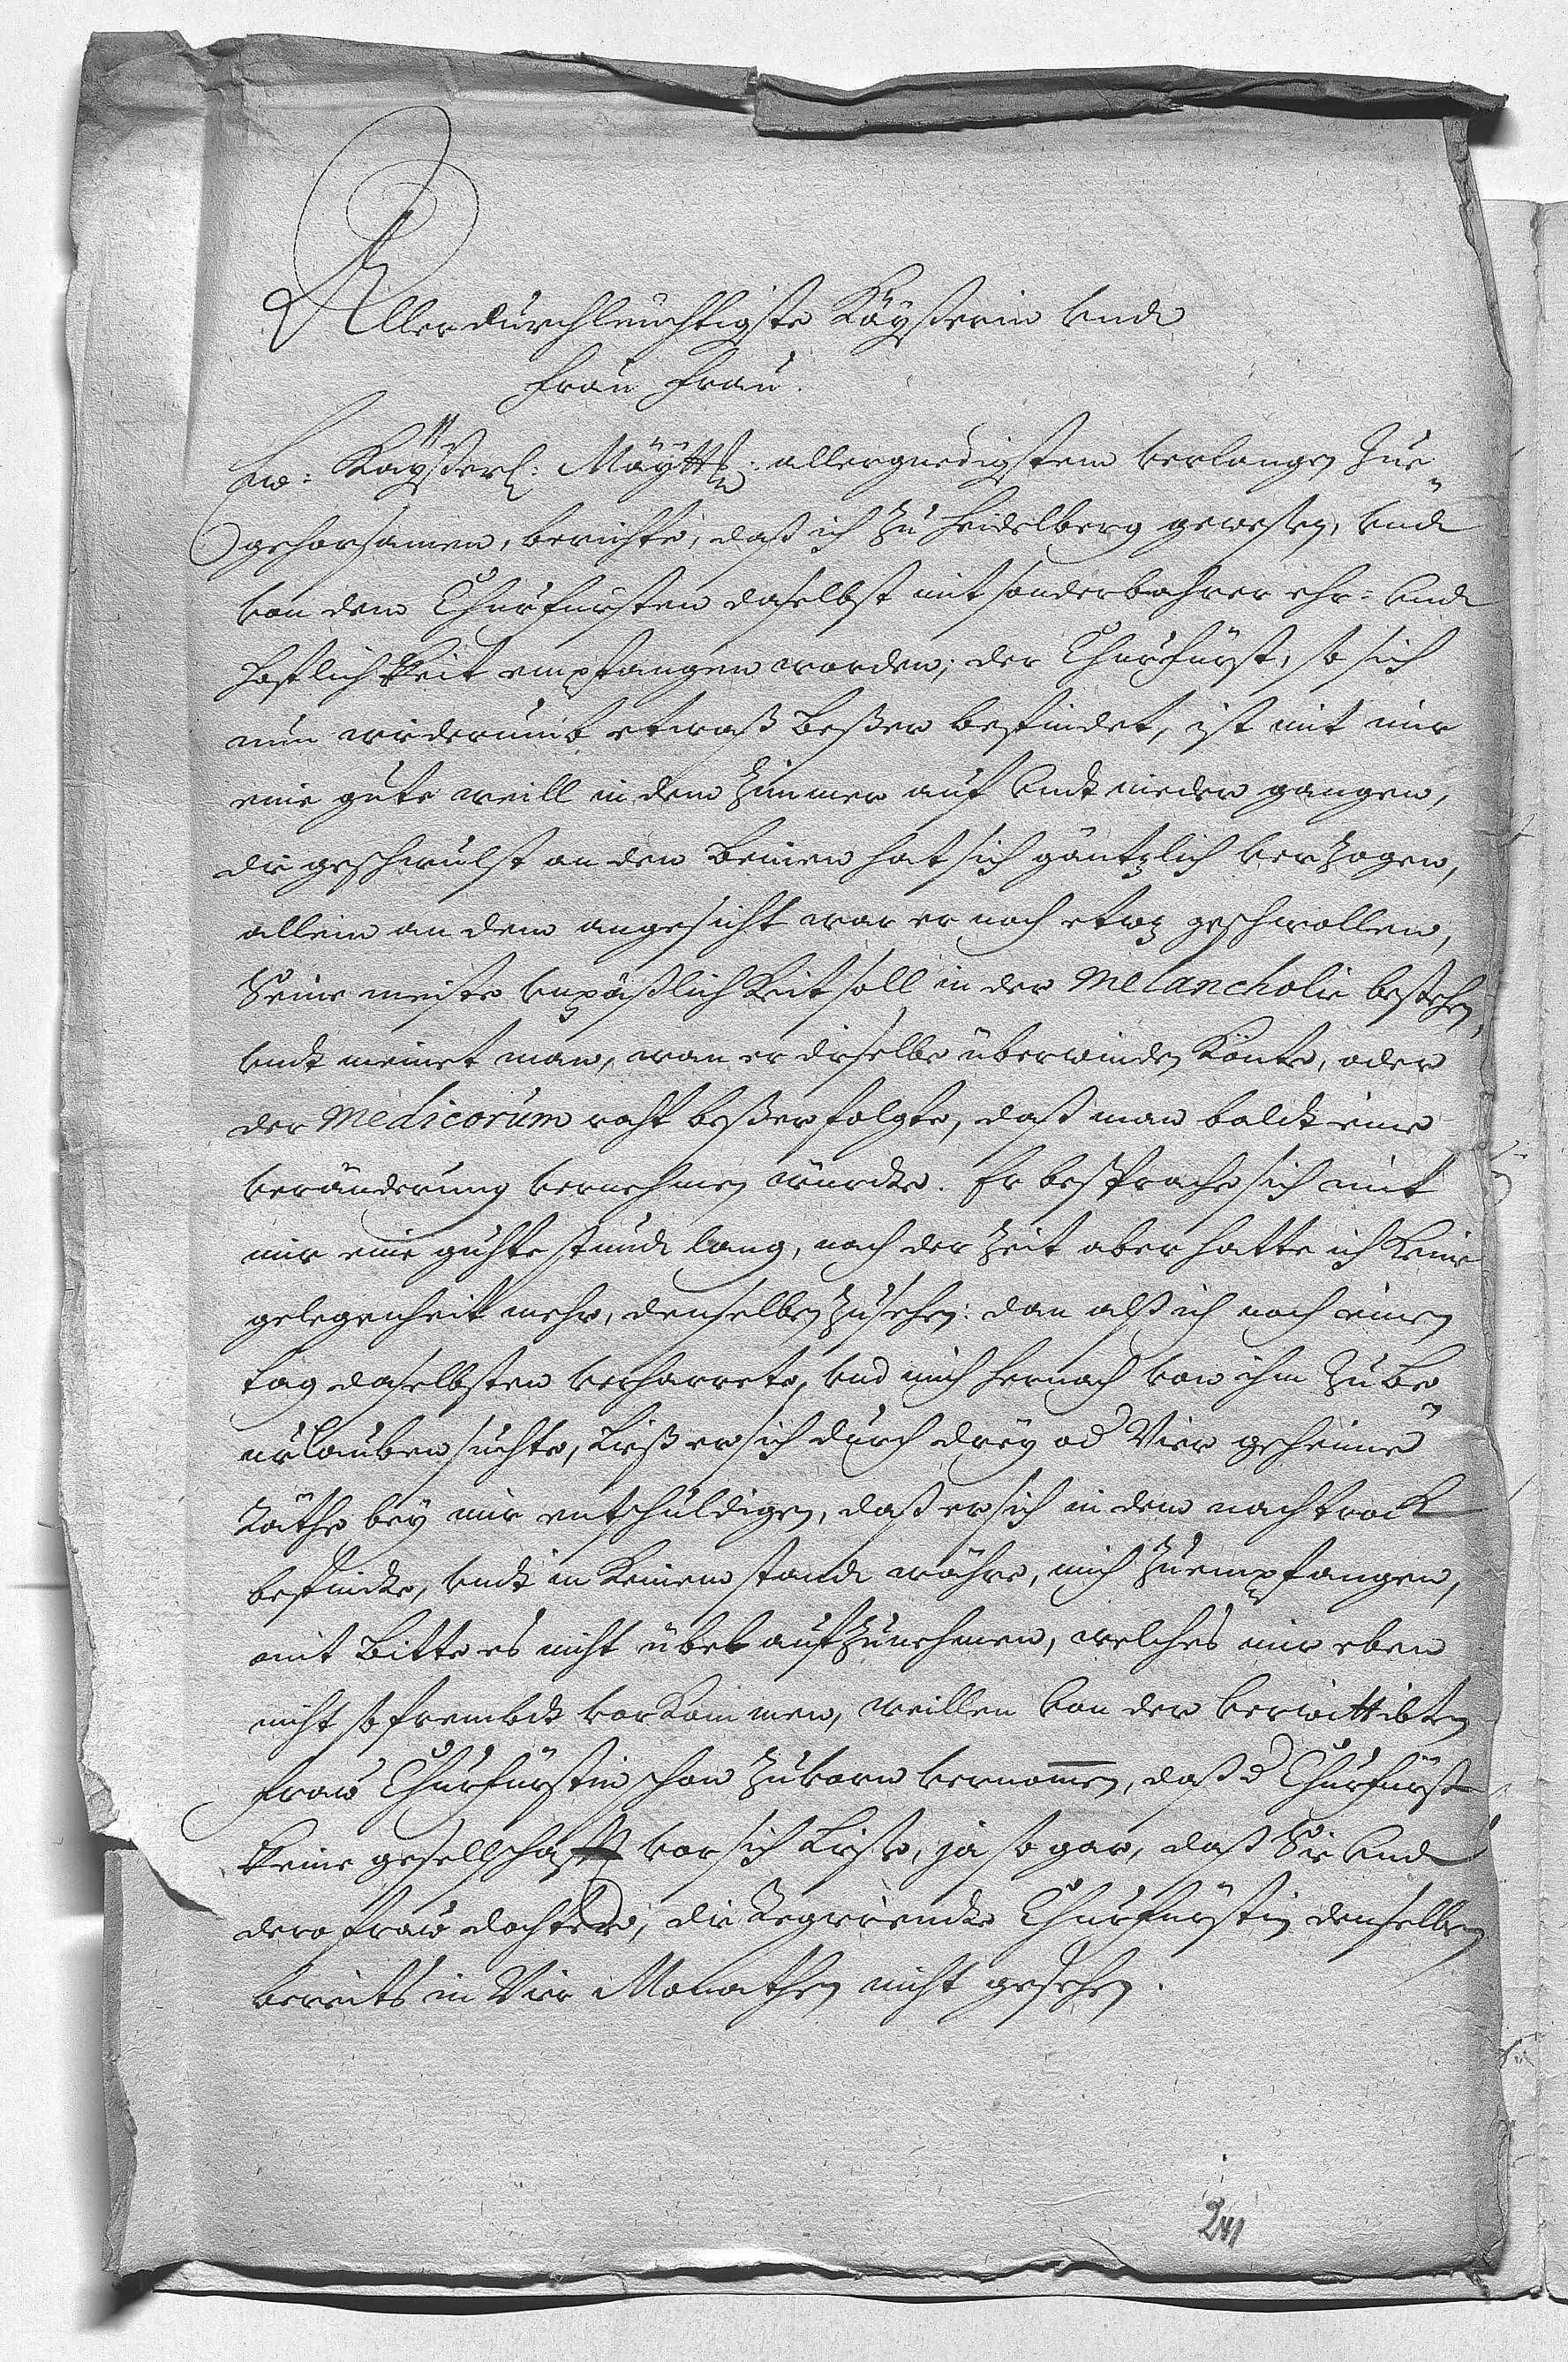 Allerdurchleuchtigste Kaÿserin undt
Frau Frau.
Ew: Kaÿserl: Maÿtt: allergnedigstem verlangen zue
gehorsamen, berichte, daß ich zu Heidelberg gewesen, undt
von dem Churfursten daselbst mit sonderbahrer ehr- undt
Hoflichkeit empfangen worden; der Churfürst, so sich
nun widerumb etwaß beßer befindet, ist mit mir
eine gute weill in dem Zimmer auf undt nieder gangen,
die geschwulst an den Beinen hat sich gäntzlich verzogen,
allein an dem angesicht war er noch etwz geschwollen,
Seine meiste unpäßlichkeit soll in der Melancholie bestehen,
undt meinet man, wan er dieselbe überwinden könte, oder
der Medicorum raht beßer folgte, daß man baldt eine
veränderung vernehmen würde. Er besprache sich mit
mir eine guhte stundt lang, nach der Zeit aber hatte ich keine
gelegenheit mehr, denselben zu sehen: dan alß ich noch einen
tag daselbsten verharrete, und mich hernach von ihm zu be-
urlauben suchte, ließ er sich durch dreÿ od Vier geheime
Räthe beÿ mir entschuldigen, daß er sich in dem nachtrock
befinde, undt in keinem standt währe, mich zu empfangen,
mit Bitte es nicht übel aufzunehmen, welches mir eben
nicht so frembdt vorkommen, weillen von der verwittibten
Fraw Churfürstin schon zuvorn vernomen, daß d Churfürst
keine gesellschafft vor sich ließe, ja so gar, daß Sie undt
dero Fraw dochter, die Regierende Churfürstin denselben
bereits in Vier Monathen nicht gesehen.
241